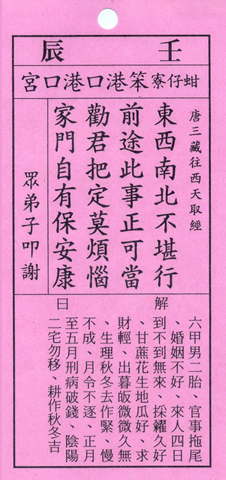 壬辰
蚶仔寮笨港口港口宮
唐三藏往西天取經
東西南北不堪行
前途此事正可當
勸君把定莫煩惱
家門自有保安康
眾弟子叩謝
解曰
六甲男二胎、官事拖尾
、婚姻不好、來人四日
到不到無來、採久好
、甘蔗花生地瓜好、求
財輕、出暮皈微微久無
、生理秋冬去作緊、慢
不成、月令不逐、正月
至五月刑病破錢、陰陽
二宅勿移、耕作秋冬吉